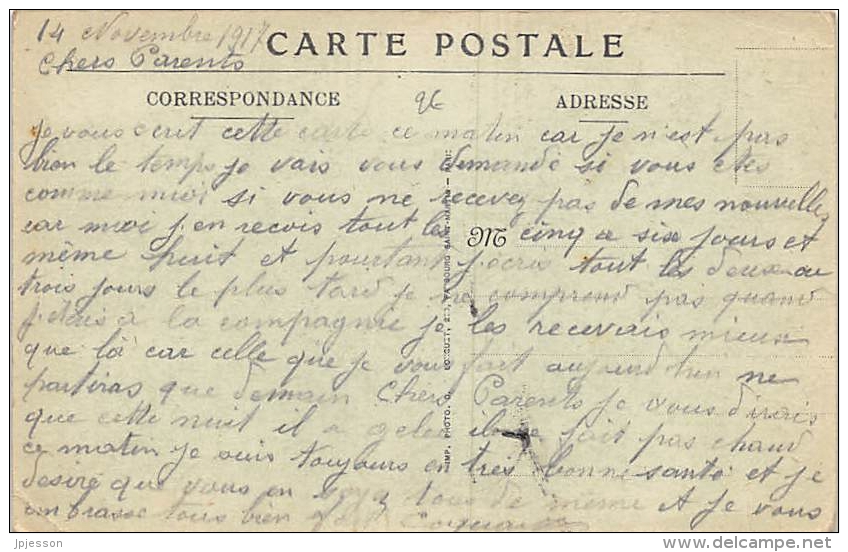 14 Novembre 1917
CARTE POSTALE
Chers Parents
CORRESPONDANCE
ADRESSE
je vous écrit cette carte ce matin car je n'est pas
bien le temps je vais vous demandé si vous etes
comme moi si vous né recevez pas de mes nouvelles
car moi j'en recois tout les cinq a six jours et
M
même huit et pourtant j'écris tout les deux ou
trois jours le plus tard je ne comprend pas quand
j'étais a la compagnie je les recevais mieux
que là car celle que je vous fait aujourd'hui ne
partiras que demain Chers Parents je vous dirais
que cette nuit il a geler il ne fait pas chaud
ce matin je suis toujours en très bonne santé et je
desire que vous en soyez tous de même et je vous
embrasse tous bien fort
IMP. PHOTO.
FAUBOURG SAINT-MARTIN
jpjesson
delcampe.net